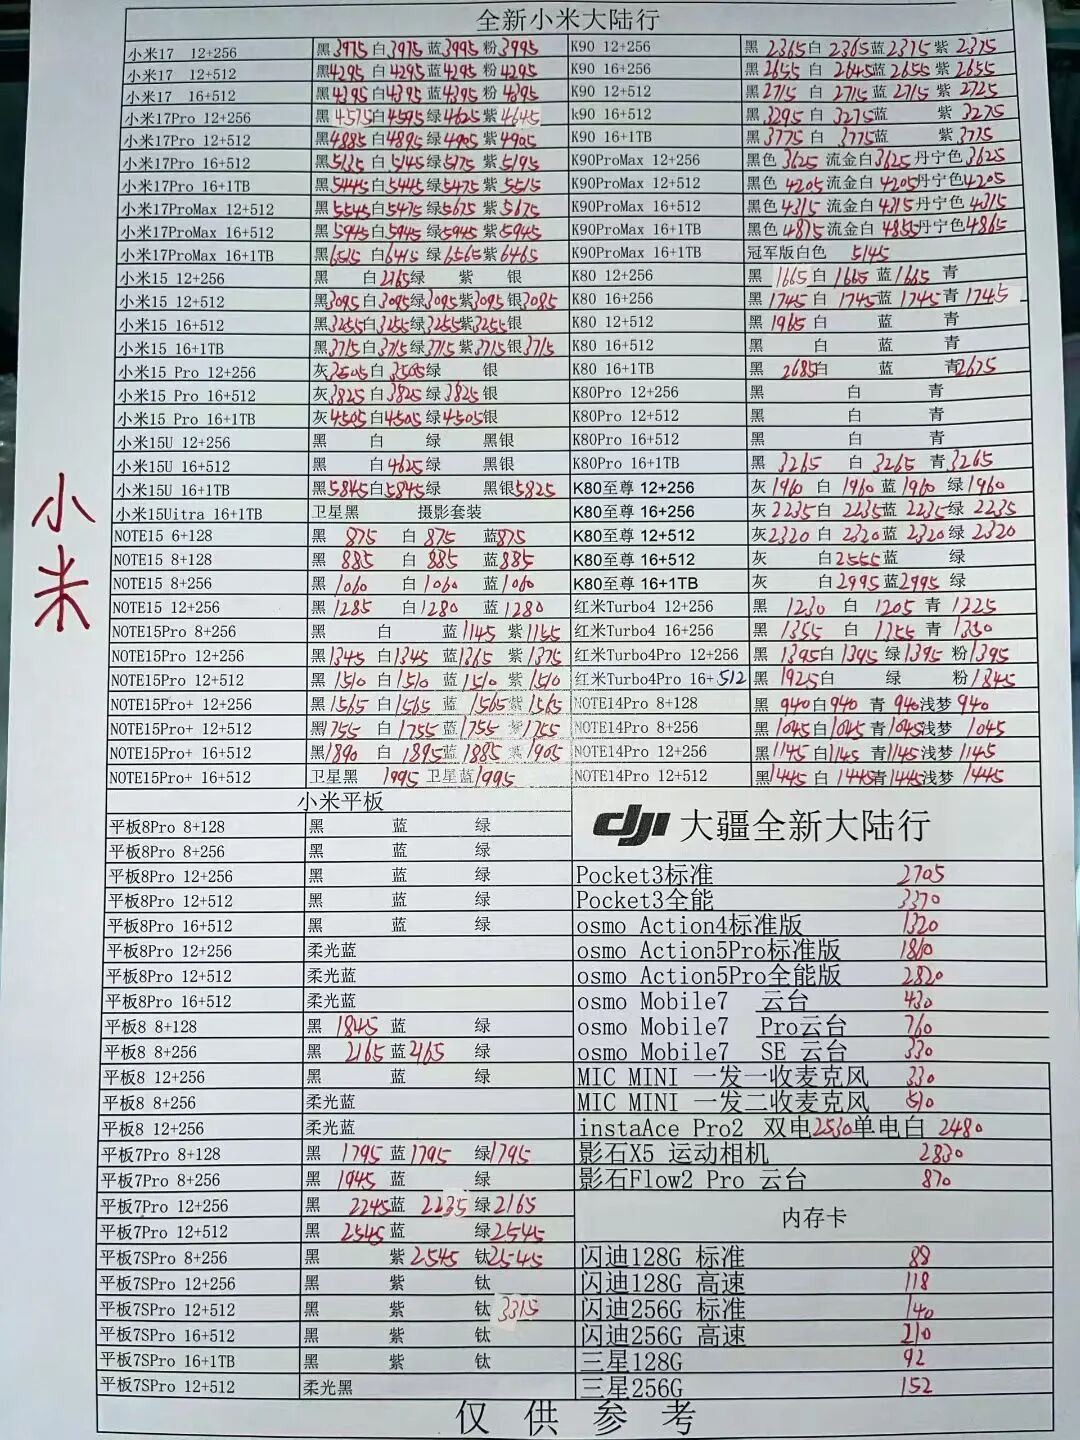 全新小米大陆行
小米17 12+256 黑3975 白3975 蓝3995 粉3995 K90 12+256 黑2365 白2365 蓝2375 紫2375
小米17 12+512 黑4295 白4295 蓝4295 粉4295 K90 16+256 黑2655 白2645 蓝2655 紫2655
小米17 16+512 黑4395 白4395 蓝4395 粉4395 K90 12+512 黑2715 白2715 蓝2715 紫2725
小米17Pro 12+256 黑4575 白4595 绿4625 紫4645 k90 16+512 黑3295 白3275 蓝 紫3275
小米17Pro 12+512 黑4885 白4895 绿4905 紫4905 K90 16+1TB 黑3775 白3775 蓝 紫3775
小米17Pro 16+512 黑5135 白5145 绿5175 紫5195 K90ProMax 12+256 黑色3625 流金白3625 丹宁色3625
小米17Pro 16+1TB 黑5445 白5445 绿5475 紫5515 K90ProMax 12+512 黑色4205 流金白4205 丹宁色4205
小米17ProMax 12+512 黑5545 白5475 绿5675 紫5675 K90ProMax 16+512 黑色4315 流金白4315 丹宁色4315
小米17ProMax 16+512 黑5945 白5945 绿5945 紫5945 K90ProMax 16+1TB 黑色4875 流金白4855 丹宁色4865
小米17ProMax 16+1TB 黑6515 白6415 绿6565 紫6465 K90ProMax 16+1TB 冠军版白色 5145
小米15 12+256 黑 白2765 绿 紫 银 K80 12+256 黑1665 白1665 蓝1665 青
小米15 12+512 黑3095 白3095 绿3095 紫3095 银3085 K80 16+256 黑1745 白1745 蓝1745 青1745
小米15 16+512 黑3255 白3255 绿3255 紫3255 银 K80 12+512 黑1965 白 蓝 青
小米15 16+1TB 黑3715 白3715 绿3715 紫3715 银3715 K80 16+512 黑 白 蓝 青
小米15 Pro 12+256 灰3505 白3505 绿 银 K80 16+1TB 黑2685 白 蓝 青2675
小米15 Pro 16+512 灰3825 白3825 绿3825 银 K80Pro 12+256 黑 白 青
小米15 Pro 16+1TB 灰4505 白4505 绿4505 银 K80Pro 12+512 黑 白 青
小米15U 12+256 黑 白 绿 黑银 K80Pro 16+512 黑 白 青
小米15U 16+512 黑 白4625 绿 黑银 K80Pro 16+1TB 黑3265 白3265 青3265
小米15U 16+1TB 黑5845 白5845 绿 黑银5825 K80至尊 12+256 灰1960 白1960 蓝1960 绿1960
小米15Uitra 16+1TB 卫星黑 摄影套装 K80至尊 16+256 灰2235 白2235 蓝2235 绿2235
NOTE15 6+128 黑875 白875 蓝875 K80至尊 12+512 灰2320 白2320 蓝2320 绿2320
NOTE15 8+128 黑885 白885 蓝885 K80至尊 16+512 灰 白2555 蓝 绿
NOTE15 8+256 黑1060 白1060 蓝1060 K80至尊 16+1TB 灰 白2995 蓝2995 绿
NOTE15 12+256 黑1285 白1280 蓝1280 红米Turbo4 12+256 黑1230 白1205 青1225
NOTE15Pro 8+256 黑 白 蓝1145 紫1155 红米Turbo4 16+256 黑1355 白1355 青1350
NOTE15Pro 12+256 黑1345 白1345 蓝1365 紫1375 红米Turbo4Pro 12+256 黑1395 白1395 绿1395 粉1395
NOTE15Pro 12+512 黑1510 白1510 蓝1510 紫1510 红米Turbo4Pro 16+512 黑1925 白 绿 粉1845
NOTE15Pro+ 12+256 黑1565 白1565 蓝1565 紫1565 NOTE14Pro 8+128 黑940 白940 青940 浅梦940
NOTE15Pro+ 12+512 黑1755 白1755 蓝1755 紫1755 NOTE14Pro 8+256 黑1045 白1045 青1045 浅梦1045
NOTE15Pro+ 16+512 黑1890 白1895 蓝1885 紫1905 NOTE14Pro 12+256 黑1145 白1145 青1145 浅梦1145
NOTE15Pro+ 16+512 卫星黑1995 卫星蓝1995 NOTE14Pro 12+512 黑1445 白1445 青1445 浅梦1445
小米
小米平板
平板8Pro 8+128 黑 蓝 绿
平板8Pro 8+256 黑 蓝 绿
平板8Pro 12+256 黑 蓝 绿
平板8Pro 12+512 黑 蓝 绿
平板8Pro 16+512 黑 蓝 绿
平板8Pro 12+256 柔光蓝
平板8Pro 12+512 柔光蓝
平板8Pro 16+512 柔光蓝
平板8 8+128 黑1845 蓝 绿
平板8 8+256 黑2165 蓝2165 绿
平板8 12+256 黑 蓝 绿
平板8 8+256 柔光蓝
平板8 12+256 柔光蓝
平板7Pro 8+128 黑1795 蓝1795 绿1795
平板7Pro 8+256 黑1945 蓝 绿
平板7Pro 12+256 黑2245 蓝2235 绿2165
平板7Pro 12+512 黑2545 蓝 绿2545
平板7SPro 8+256 黑 紫2545 钛2545
平板7SPro 12+256 黑 紫 钛
平板7SPro 12+512 黑 紫 钛3315
平板7SPro 16+512 黑 紫 钛
平板7SPro 16+1TB 黑 紫 钛
平板7SPro 12+512 柔光黑
dji 大疆全新大陆行
Pocket3标准 2705
Pocket3全能 3370
osmo Action4标准版 1320
osmo Action5Pro标准版 1810
osmo Action5Pro全能版 2820
osmo Mobile7 云台 430
osmo Mobile7 Pro云台 760
osmo Mobile7 SE 云台 330
MIC MINI 一发一收麦克风 330
MIC MINI 一发二收麦克风 510
instaAce Pro2 双电2530单电白 2480
影石X5 运动相机 2830
影石Flow2 Pro 云台 870
内存卡
闪迪128G 标准 88
闪迪128G 高速 118
闪迪256G 标准 140
闪迪256G 高速 210
三星128G 92
三星256G 152
仅供参考